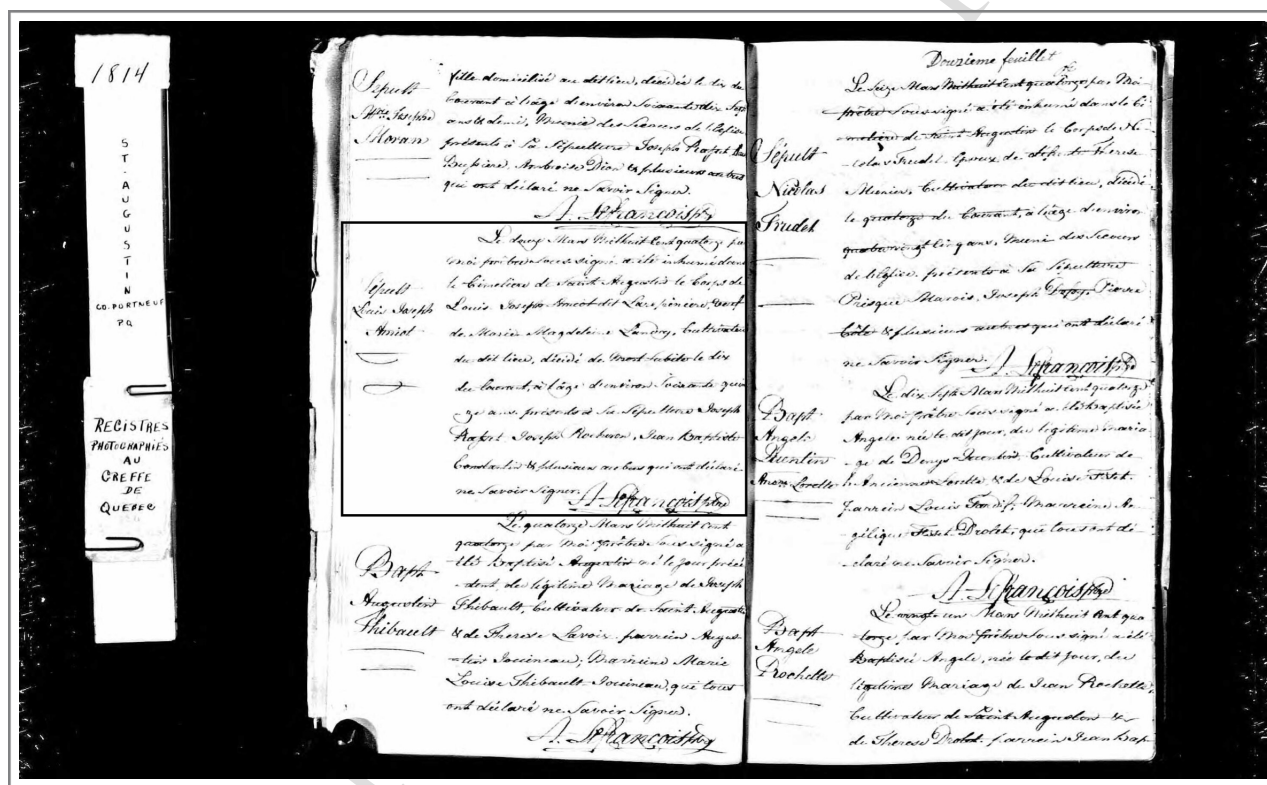 1814
ST. AUGUSTIN
CO. PORTNEUF
P.Q
REGISTRES
PHOTOGRAPHIÉS
AU
GREFFE
DE
QUEBEC
Sépult
Mrie Josephe
Moran
fille domicilié au dit lieu, décédée le dix du
Courant à l'âge d'environ Soixante dix Sept
ans & demi, Munie des Secours de l'Eglise
présents à Sa Sépulture Joseph
Ambroise Dion & plusieurs autres
qui ont déclaré ne Savoir Signer.
A. Lefrançois ptre
Sépult
Louis Joseph
Amiot
Le douze Mars Milhuit Cent quatorze par
moi prêtre Sous signé a été inhumé dans
le Cimetière de Saint Augustin le Corps de
Louis Joseph Amiot dit Larpinière, Veuf
de Marie Magdeleine Landry, Cultivateur
du dit lieu, décédé de Mort Subite le dix
du Courant, à l'âge d'environ Soixante quin
ze ans. présents à Sa Sépulture Joseph
Joseph Rocheron, Jean Baptiste
Constantin & plusieurs autres qui ont déclaré
ne Savoir Signer.
A. Lefrançois ptre
Bapt
Augustin
Thibault
Le quatorze Mars Milhuit Cent
quatorze par Moi Prêtre Sous signé a
été baptisé Augustin né le Jour précé
-dent, du légitime Mariage de Joseph
Thibault, Cultivateur de Saint Augustin
& de Therese Lavoix. parrein Augus
-tin Jouineau; Marreine Marie
Louise Thibault Jouineau, qui tous
ont déclaré ne Savoir Signer.
A. Lefrançois ptre
Douzieme feuillet
Sépult
Nicolas
Trudel
Le Seize Mars Milhuit Cent quatorze par Moi
prêtre Sous signé a été inhumé dans le Ci
-metière de Saint Augustin le Corps de Ni
-colas Trudel Epoux de Therese
Meunier, Cultivateur du dit lieu, décédé
le quatorze du Courant, à l'âge d'environ
quatrevingt Cinq ans, Muni des Secours
de l'Eglise. présents à Sa Sépulture
Prisque Marois, Joseph Pierre
Côté & plusieurs autres qui ont déclaré
ne Savoir Signer.
A. Lefrançois ptre
Bapt
Angele
Anc. Lorette
Le dix Sept Mars Milhuit Cent quatorze
par Moi prêtre Sous signé a été baptisée
Angele née le dit Jour, du légitime maria
-ge de Denys Cultivateur de
l'Ancienne Lorette & de Louise Fiset.
parrein Louis Marreine An
gélique Fiset Drolet, qui tous ont dé
-claré ne Savoir Signer.
A. Lefrançois ptre
Bapt
Angele
Rochette
Le vingt un Mars Milhuit Cent qua
-torze, par Moi prêtre Sous signé a été
baptisée Angele, née le dit Jour, du
légitime Mariage de Jean Rochette,
Cultivateur de Saint Augustin &
de Therese Drolet. parrein Jean Bap